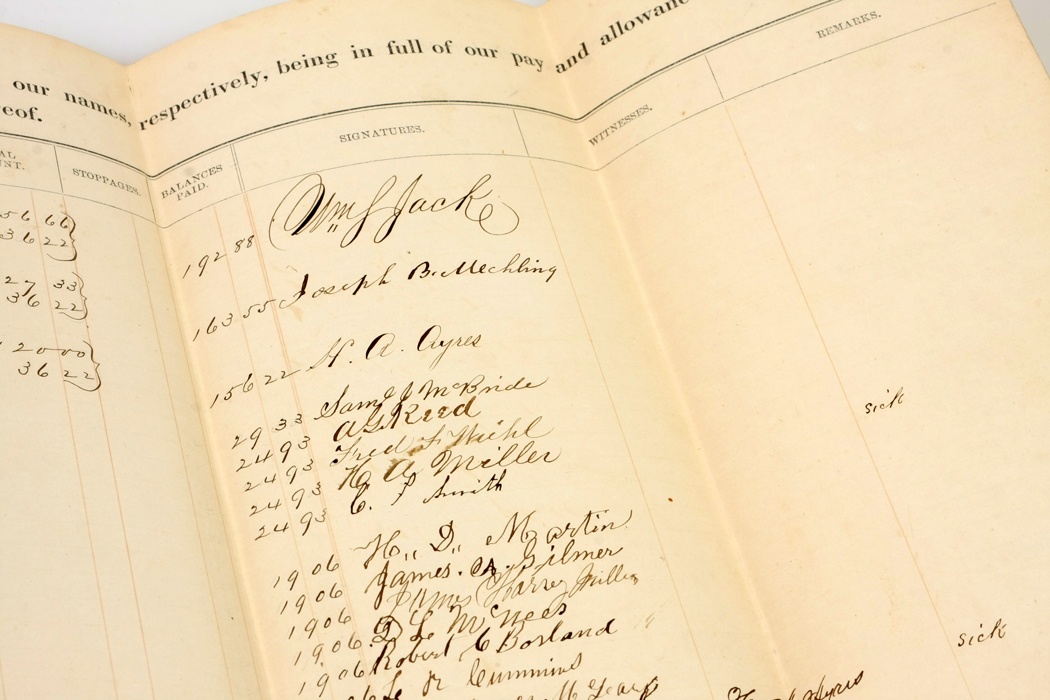 our names, respectively, being in full of our pay and allowanc
eof.
AL
UNT.
STOPPAGES.
BALANCES
PAID.
SIGNATURES.
WITNESSES.
REMARKS.
56 66
36 22
192 88 Wm J Jack
27 33
36 22
163 55 Joseph B. Mechling
2000
36 22
156 22 H. A. Ayres
29 33 Saml J McBride
24 93 A G Reed
24 93 Fred F Wiehl
24 93 H. A Miller
24 93 C. P Smith
sick
19 06 H,, D,, Martin
19 06 James. A. Gilmer
19 06 Harvey Miller
19 06. D L McNees
19 06 Robert C Borland
Cummins
sick
Ayres